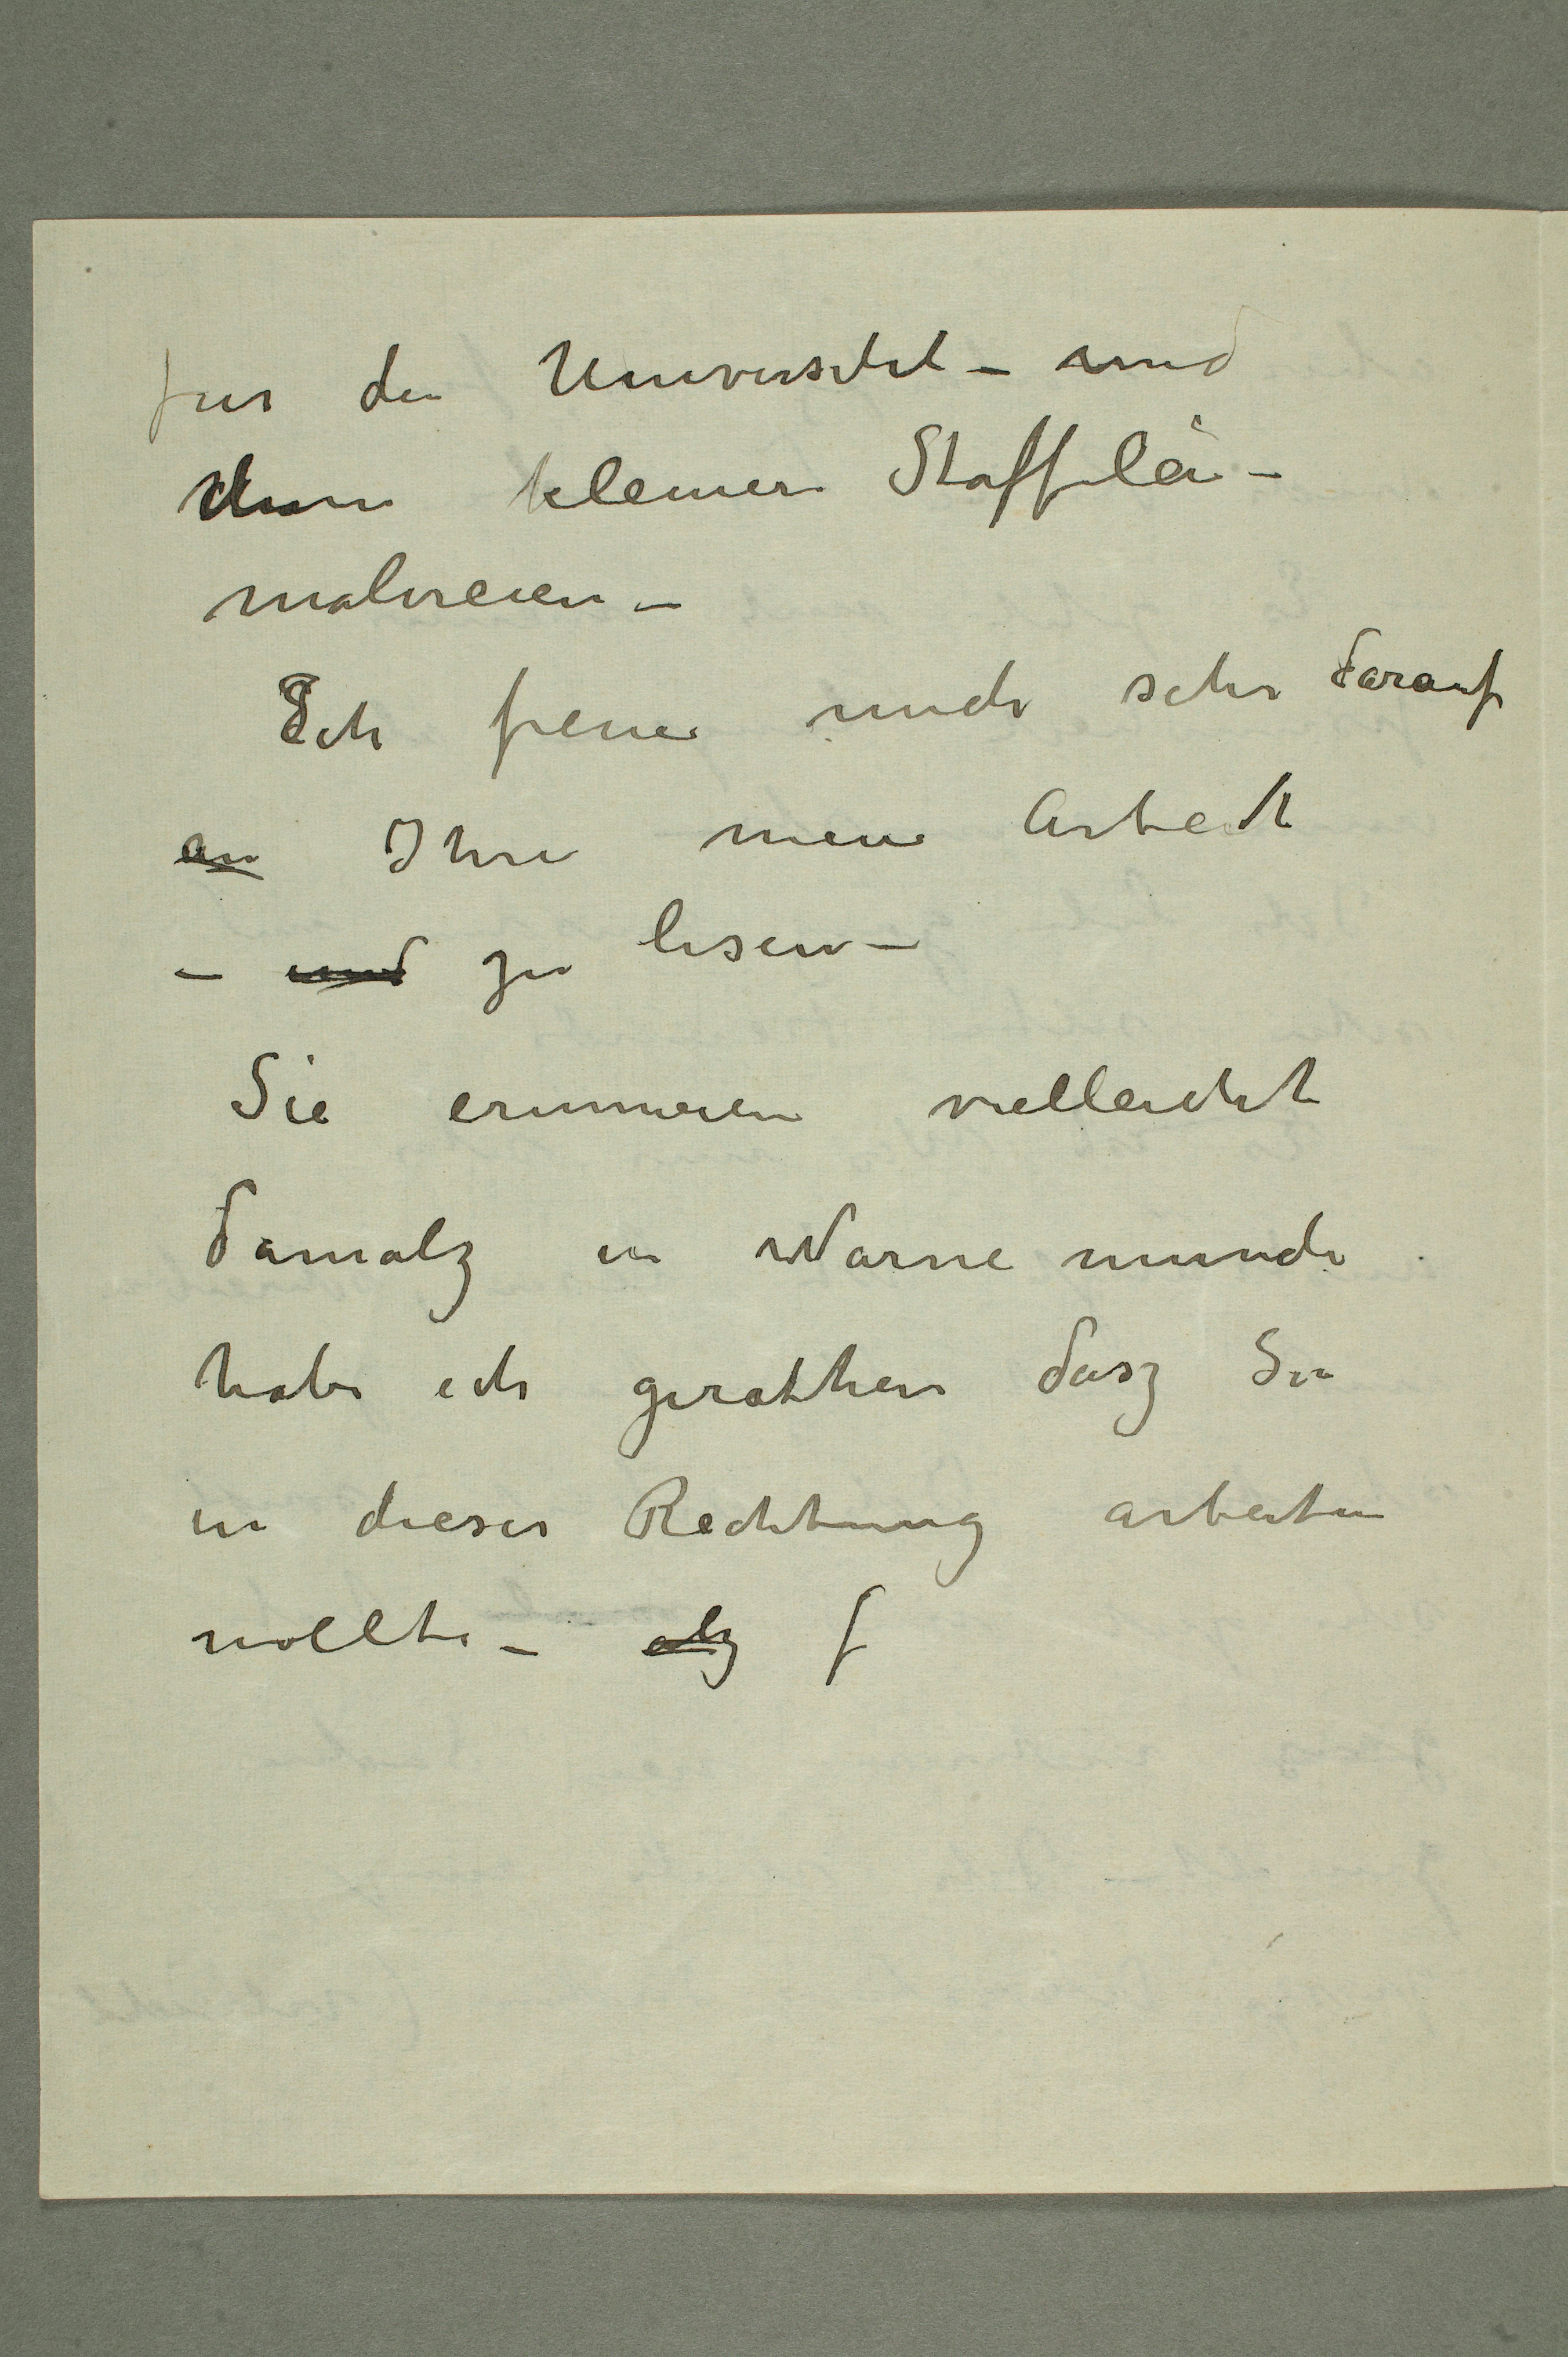 für die Universität – und
dann kleinere Staffelei–
malereien –
Ich freue mich sehr darauf
an Ihre neue Arbeit
– und zu lesen –
Sie erinneren vielleicht
damalz in Warnemunde
habe ich gerathen dasz Sie
in dieser Rechtung arbeiten
wollte – alz f